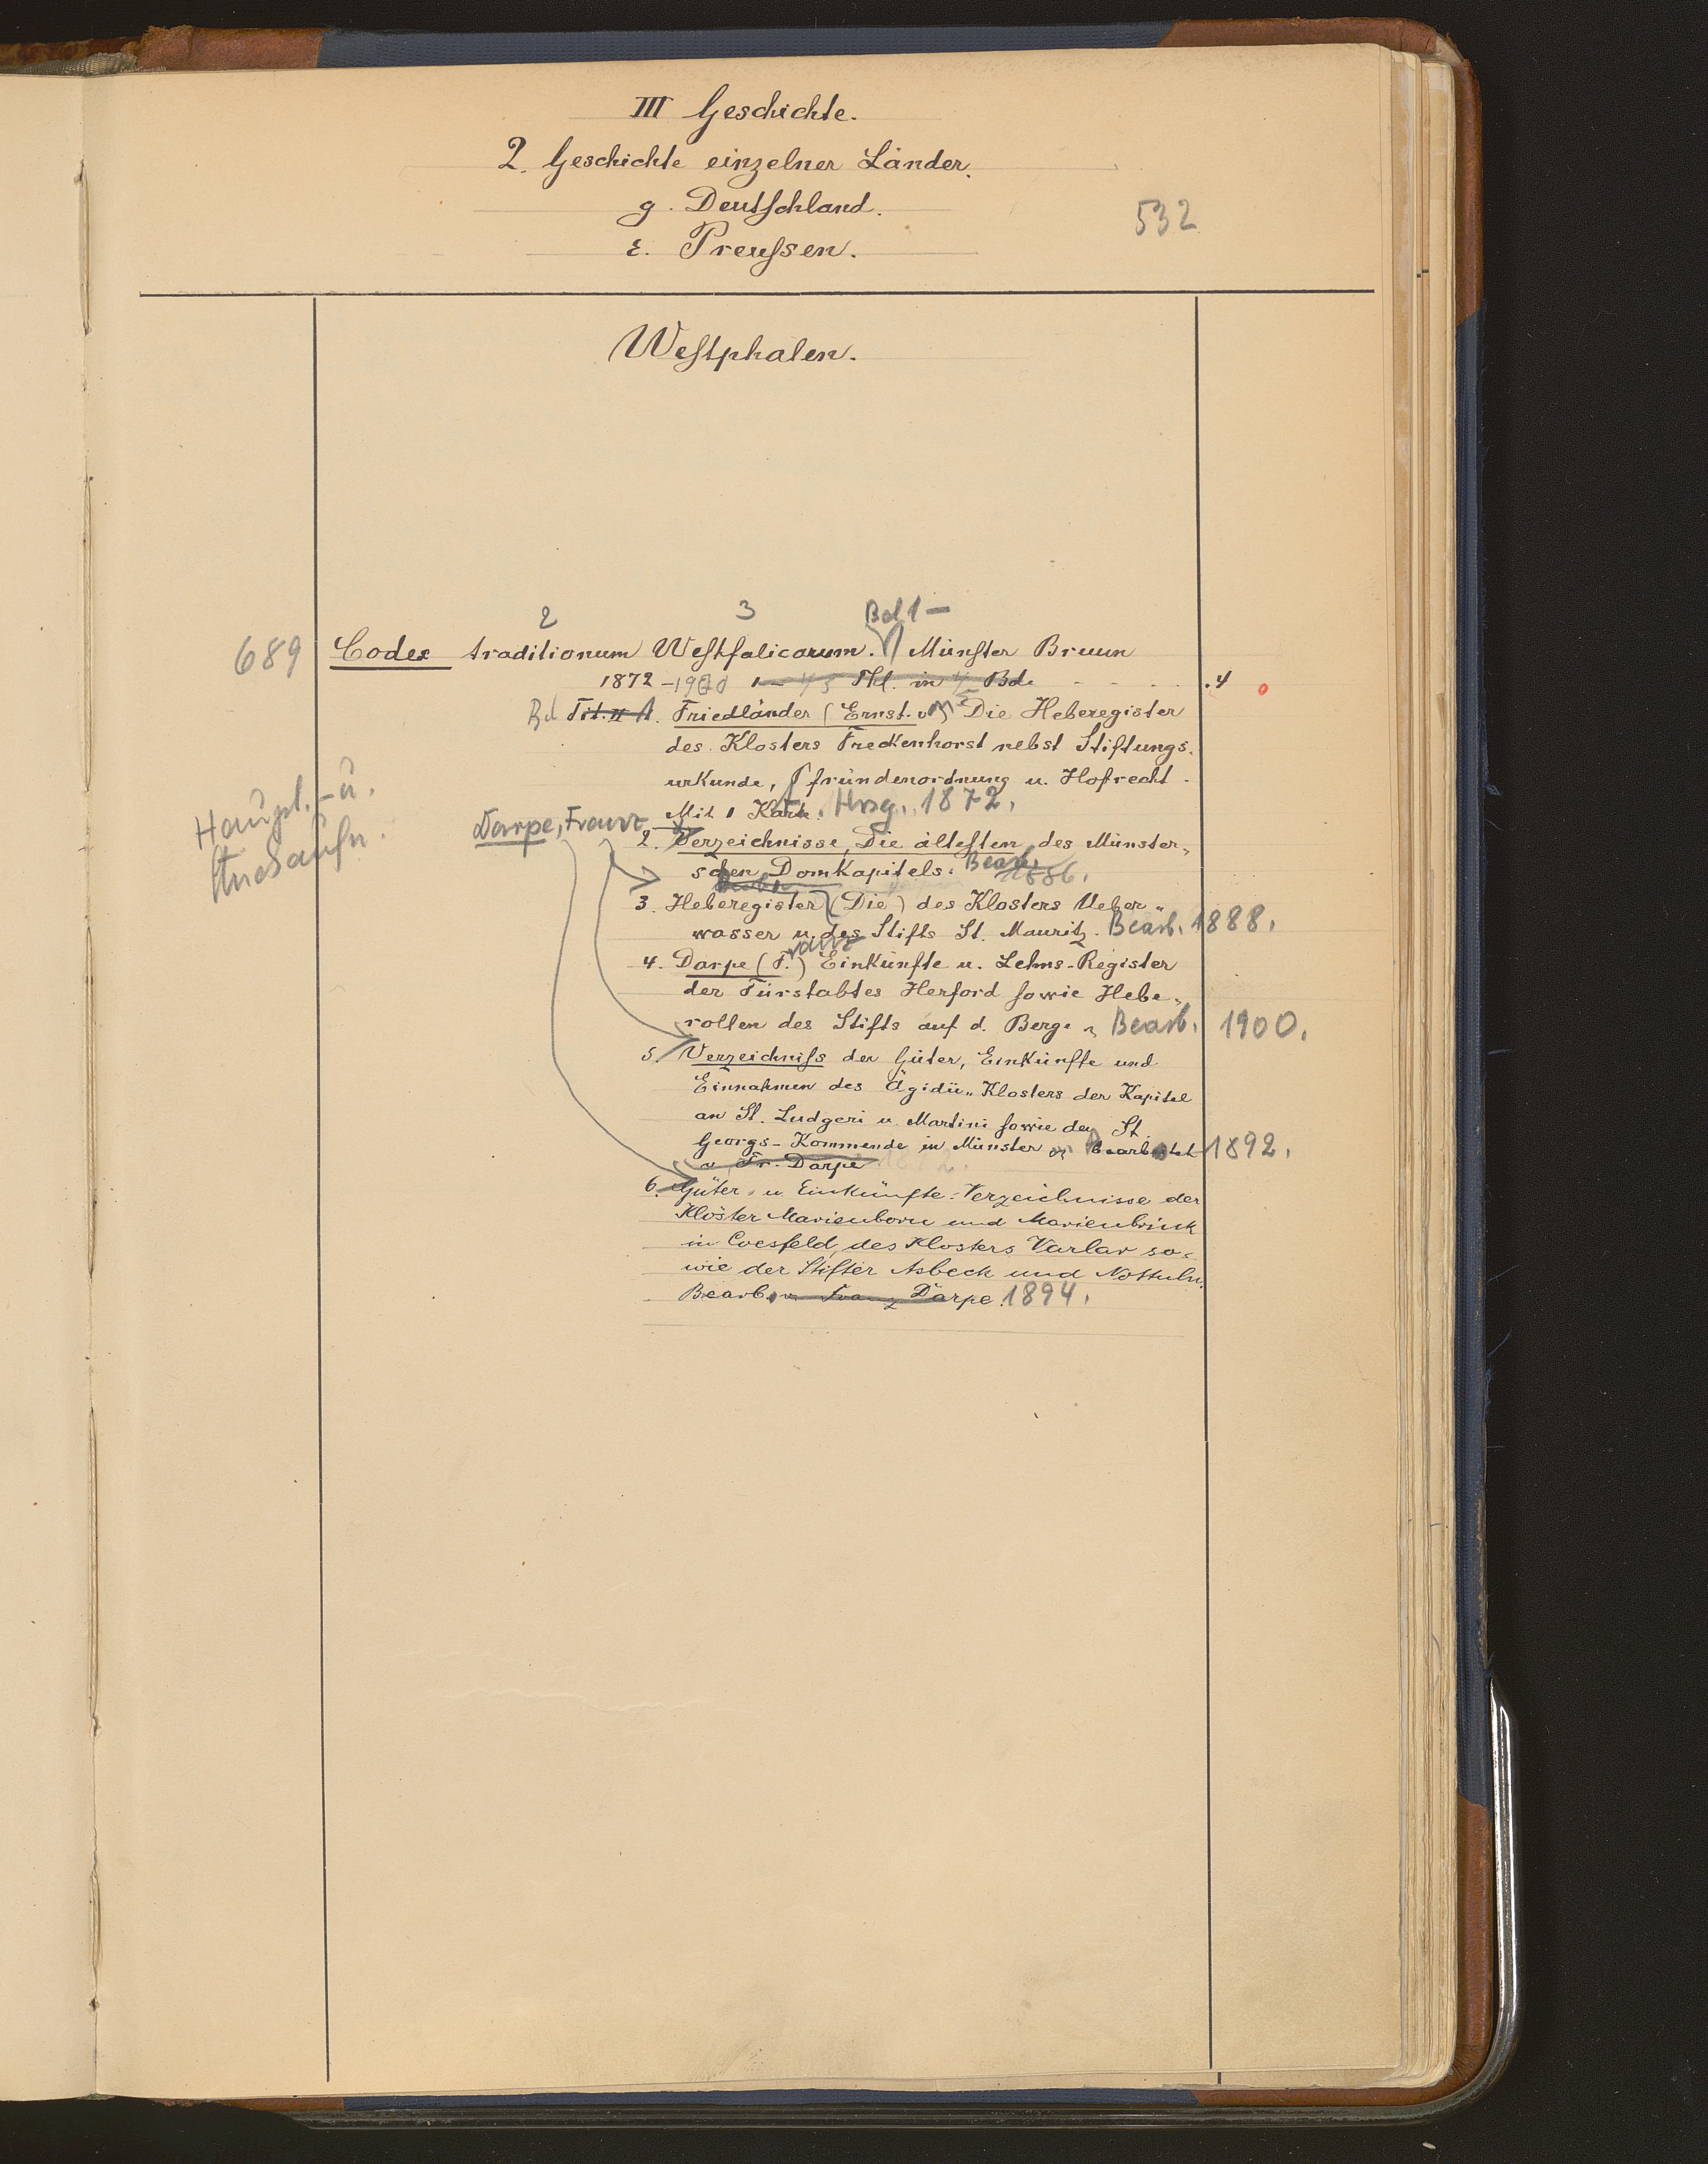 III Geschichte.
2. Geschichte einzelner Länder.
g. Deutschland.
532
ε. Preussen.
Westphalen.
2 3 Bd 1 –
689 Codex traditionum Westfalicorum. Münster Bruun
1872 – 19 1 – 4 5 Thl. in 4 5 Bde - - - - - . 4 o
Bd Tit. II 1. Friedländer (Ernst v) Die Heberegister
des Klosters Freckenhorst nebst Stiftungs-
urkunde, Pfründenordnung u. Hofrecht.
Haupt.- u.
Mit 1 Karte. Hrsg. 1872.
Darpe, Franz
2. Verzeichnisse, Die ältesten, des Münster-
schen Domkapitels. Bearb. 1886.
3. Heberegister (Die) des Klosters Ueber-
wasser u. des Stifts St. Mauritz. Bearb. 1888.
4. Darpe (F.) Franz Einkünfte u. Lehns-Register
der Fürstabtes Herford sowie Hebe-
rollen des Stifts auf d. Berge Bearb. 1900.
5. Verzeichniss der Güter, Einkünfte und
Einnahmen des Ägidii-Klosters der Kapitel
an St. Ludgeri u. Martini sowie der St.
Georgs-Kommende in Münster Bearbeitet 1892.
v. Fr. Darpe
6. Güter- u. Einkünfte-Verzeichnisse der
Klöster Marienborn und Marienbrink
in Coesfeld, des Klosters Varlar so-
wie der Stifter Asbeck und Nottuln.
Bearb. v. Franz Darpe. 1894.